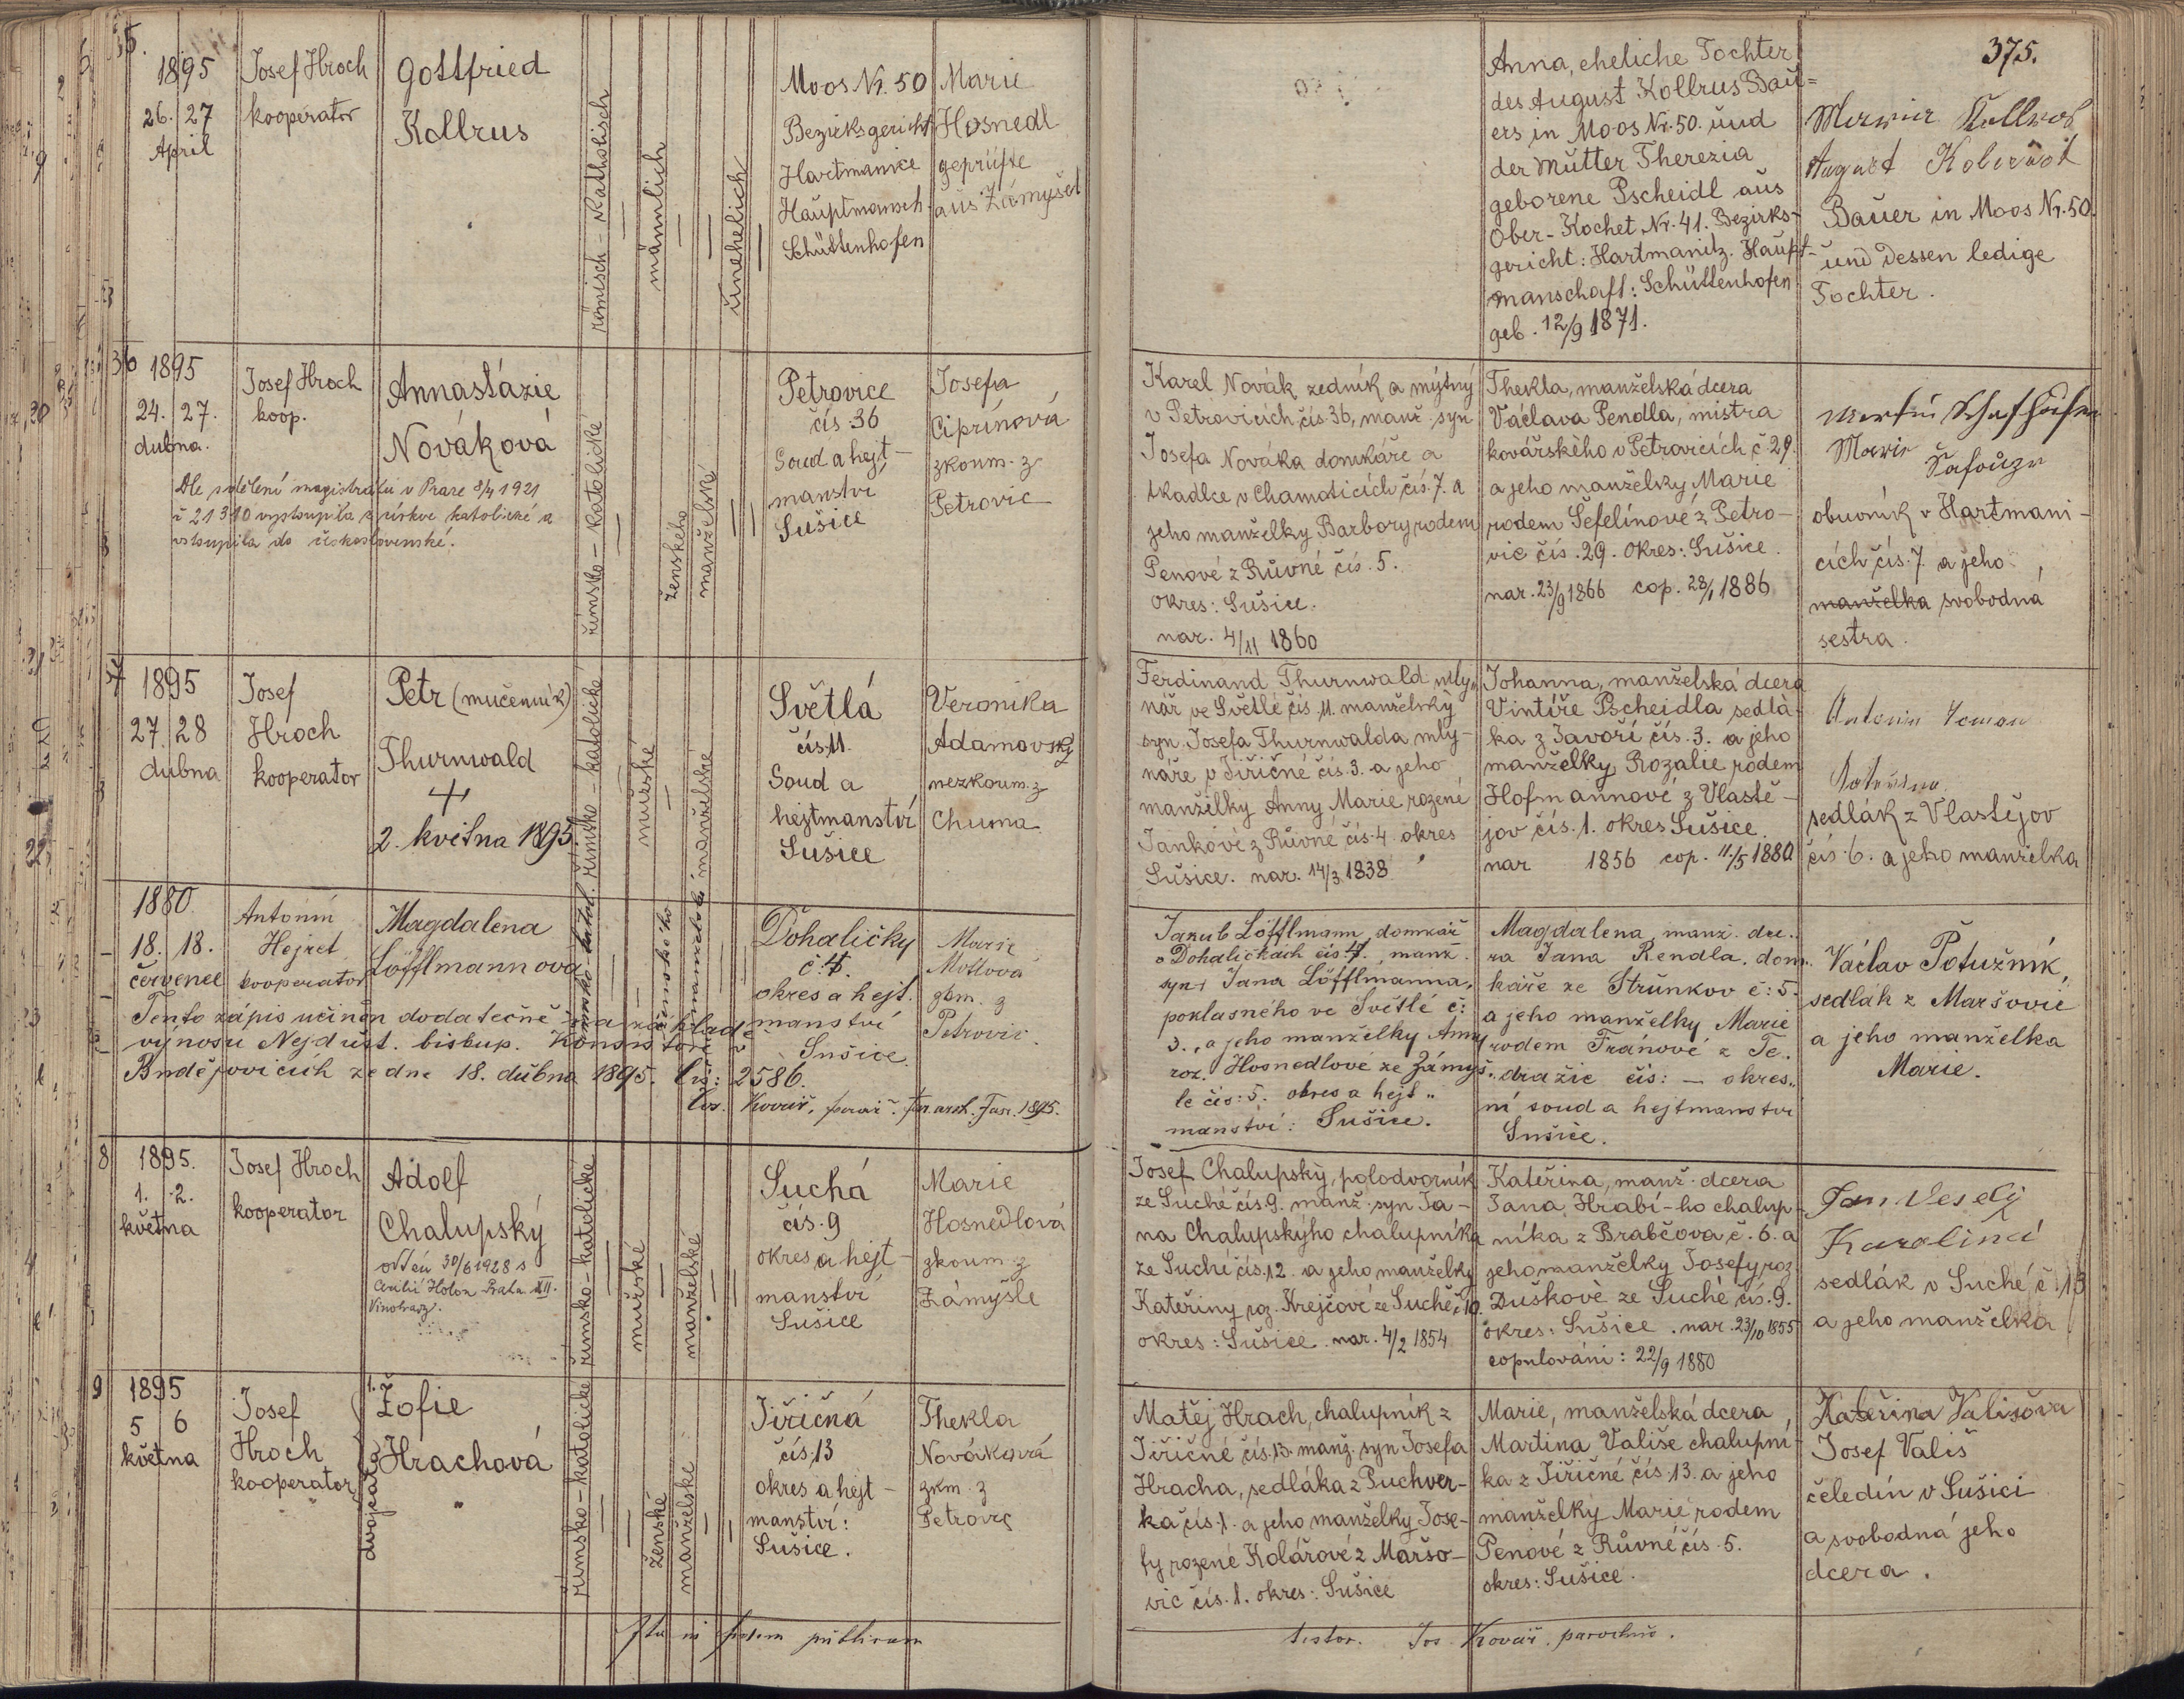 35.
1895
26. 27
April
Josef Hroch
kooperator
Gottfried
Kollrus
römisch - Katholisch
männlich
unehelich
Moos Nr. 50
Bezirksgericht
Hartmanice
Hauptmansch.
Schüttenhofen
Marie
Hosnedl
geprüfte
aus Zámyšel
Anna, eheliche Tochter
des August Kollrus Bau=
ers in Moos Nr. 50. und
der Mutter Therezia
geborene Pscheidl aus
Ober-Kochet, Nr. 41. Bezirks-
gericht: Hartmanitz. Haupt-
manschaft: Schüttenhofen
geb. 12/9 1871.
375.
August
Bauer in Moos Nr. 50.
und dessen ledige
Tochter.
36
1895
24. 27.
dubna.
Josef Hroch
koop.
Annastázie
Nováková
Dle sdělení magistrátu v Praze 8/4 1921
č 21310 vystoupila z církve katolické a
vstoupila do československé.
římsko-katolické
ženského
manželské
Petrovice
čís 36
Soud a hejt-
manství
Sušice
Josefa
Ciprínová
zkoum. z
Petrovic
Karel Novák zedník a mýtný
v Petrovicích čís. 36, manž. syn
Josefa Nováka domkáře a
tkadlce v Chamoticích čís. 7. a
jeho manželky Barbory, rodem
Penové z Růvné čís. 5.
okres: Sušice.
nar. 4/11 1860
Thekla, manželská dcera
Václava Pendla, mistra
kovářského v Petrovicích č. 29.
a jeho manželky Marie
rodem Šefelínové z Petro-
vic čís. 29. okres: Sušice.
nar. 23/9 1866 cop. 28/1 1886
obuvník v Hartmani-
cích čís. 7. a jeho
manželka svobodná
sestra.
37
1895
27. 28
dubna
Josef
Hroch
kooperator
Petr (mučenník)
Thurnwald
+
2. května 1895.
římsko-katolické
mužské
manželské
Světlá
čís. 11.
Soud a
hejtmanství
Sušice
Veronika
Adamovský
nezkoum. z
Chuma
Ferdinand Thurnwald mly„
nář ve Světlé čís. 11. manželský
syn Josefa Thurnwalda mly-
náře v Jiřičné čís. 3. a jeho
manželky Anny Marie rozené
Jankové z Růvné čís. 4. okres
Sušice. nar. 14/3. 1838
Johanna, manželská dcera
Vintíře Pscheidla sedlá-
ka z Javoří čís. 3. a jeho
manželky Rozalie rodem
Hofmannové z Vlastě-
jov čís. 1. okres Sušice.
nar 1856 cop. 11./5 1880
Antonín
sedlák z Vlastějov
čís. 6. a jeho manželka
1880
18. 18.
červenec
Antonín
Hejret
kooperator
Magdalena
Löfflmannová
římsko-katol.
ženského
manželské
Dohaličky
č. 4.
okres a hejt.
manství
Sušice
Marie
Motlová
zkm. z
Petrovic.
Tento zápis učiněn dodatečně na základě
výnosu Nejdůst. biskup. Konsistoře v
Budějovicích ze dne 18. dubna 1895. čís: 2586.
Jos. Kovář, farář.
Jakub Löfflmann, domkář
v Dohaličkách čís. 4., manž.
syn Jana Löfflmanna,
poklasného ve Světlé č:
3., a jeho manželky Anny
roz. Hosnedlové ze Zámyš„
le čís: 5. okres a hejt„
manství: Sušice.
Magdalena, manž. dce„
ra Jana Rendla, dom„
káře ze Strunkov č: 5.
a jeho manželky Marie
rodem Fránové z Te„
dražic čís: — okres„
ní soud a hejtmanství
Sušice.
Václav Potužník,
sedlák z Maršovic
a jeho manželka
Marie.
8
1895.
1. 2.
května
Josef Hroch
kooperator
Adolf
Chalupský
oddán 30/6 1928 s
Praha XII.
Vinohrady.
římsko-katolické
mužské
manželské
Suchá
čís. 9
okres a hejt-
manství
Sušice
Marie
Hosnedlová
zkoum. z
Zámyšle
Josef Chalupský, polodvorník
ze Suché čís 9. manž. syn Ja-
na Chalupskýho chalupníka
ze Suché čís. 12. a jeho manželky
Kateřiny roz. Krejčové ze Suché č. 10.
okres: Sušice. nar. 4/2 1854
Kateřina, manž. dcera
Jana Hrabí-ho chalup-
níka z Brabčova č. 6. a
jeho manželky Josefy roz.
Duškové ze Suché čís. 9.
okres: Sušice. nar. 23/10 1855
copulováni: 22/9 1880
Jan Veselý
Karolina
sedlák v Suché č. 13
a jeho manželka
9
1895
5 6
května
Josef
Hroch
kooperator
dvojčata
1.
Žofie
Hrachová
římsko-katolické
ženské
manželské
Jiřičná
čís. 13
okres a hejt-
manství:
Sušice.
Thekla
Nováková
zkm. z
Petrovic
Matěj Hrach, chalupník z
Jiřičné čís. 13. manž. syn Josefa
Hracha, sedláka z Puchver-
ka čís. 1. a jeho manželky Jose-
fy rozené Kolářové z Maršo-
vic čís. 1. okres: Sušice
Marie, manželská dcera
Martina Vališe chalupní-
ka z Jiřičné čís. 13. a jeho
manželky Marie rodem
Penové z Růvné čís. 5.
okres: Sušice.
Kateřina Vališova
Josef Vališ
čeledín v Sušici
a svobodná jeho
dcera.
testor. Jos. Kovář, parochus.